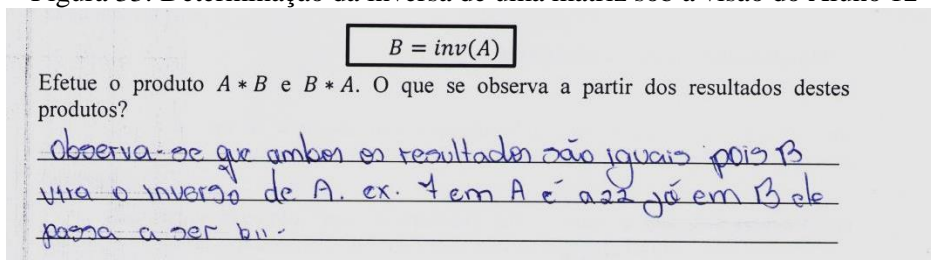 Figura 35: Determinação da inversa de uma matriz sob a visão do Aluno 12
B = inv(A)
Efetue o produto A * B e B * A. O que se observa a partir dos resultados destes
produtos?
Observa-se que ambos os resultados são iguais pois B
vira o inverso de A. ex. 7 em A é a22 já em B ele
passa a ser b11.